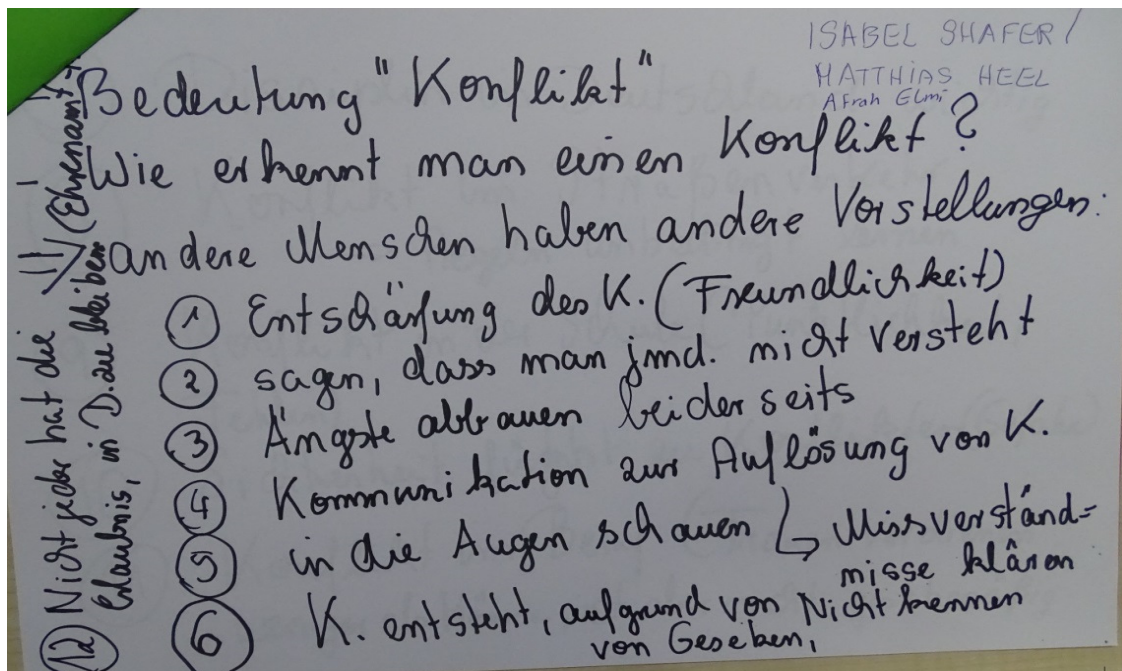 ISABEL SHAFER /
MATTHIAS HEEL
Afrah Elmi
Bedeutung "Konflikt"
Wie erkennt man einen Konflikt?
andere Menschen haben andere Vorstellungen:
① Entschärfung des K. (Freundlichkeit)
② sagen, dass man jmd. nicht versteht
③ Ängste abbauen beiderseits
④ Kommunikation zur Auflösung von K.
↳ Missverständ=
nisse klären
⑤ in die Augen schauen
⑥ K. entsteht, aufgrund von Nichtkennen
von Gesetzen,
⑫ Nicht jeder hat die
Erlaubnis, in D. zu bleiben